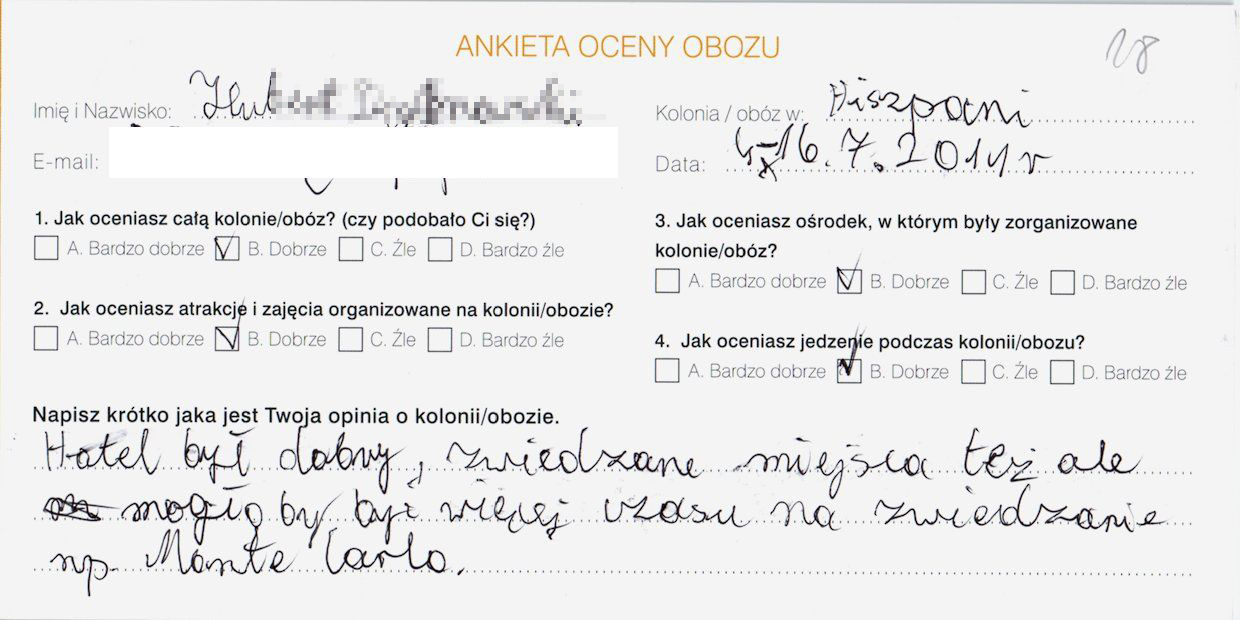 ANKIETA OCENY OBOZU
28
Imię i Nazwisko: Hubert
Kolonia / obóz w: Hiszpani
E-mail:
Data: 4-16.7.2014r
1. Jak oceniasz całą kolonie/obóz? (czy podobało Ci się?)
A. Bardzo dobrze B. Dobrze C. Źle D. Bardzo źle
2. Jak oceniasz atrakcje i zajęcia organizowane na kolonii/obozie?
A. Bardzo dobrze B. Dobrze C. Źle D. Bardzo źle
3. Jak oceniasz ośrodek, w którym były zorganizowane
kolonie/obóz?
A. Bardzo dobrze B. Dobrze C. Źle D. Bardzo źle
4. Jak oceniasz jedzenie podczas kolonii/obozu?
A. Bardzo dobrze B. Dobrze C. Źle D. Bardzo źle
Napisz krótko jaka jest Twoja opinia o kolonii/obozie.
Hotel był dobry, zwiedzane miejsca też ale
mogło by być więcej czasu na zwiedzanie
np. Monte Carlo.